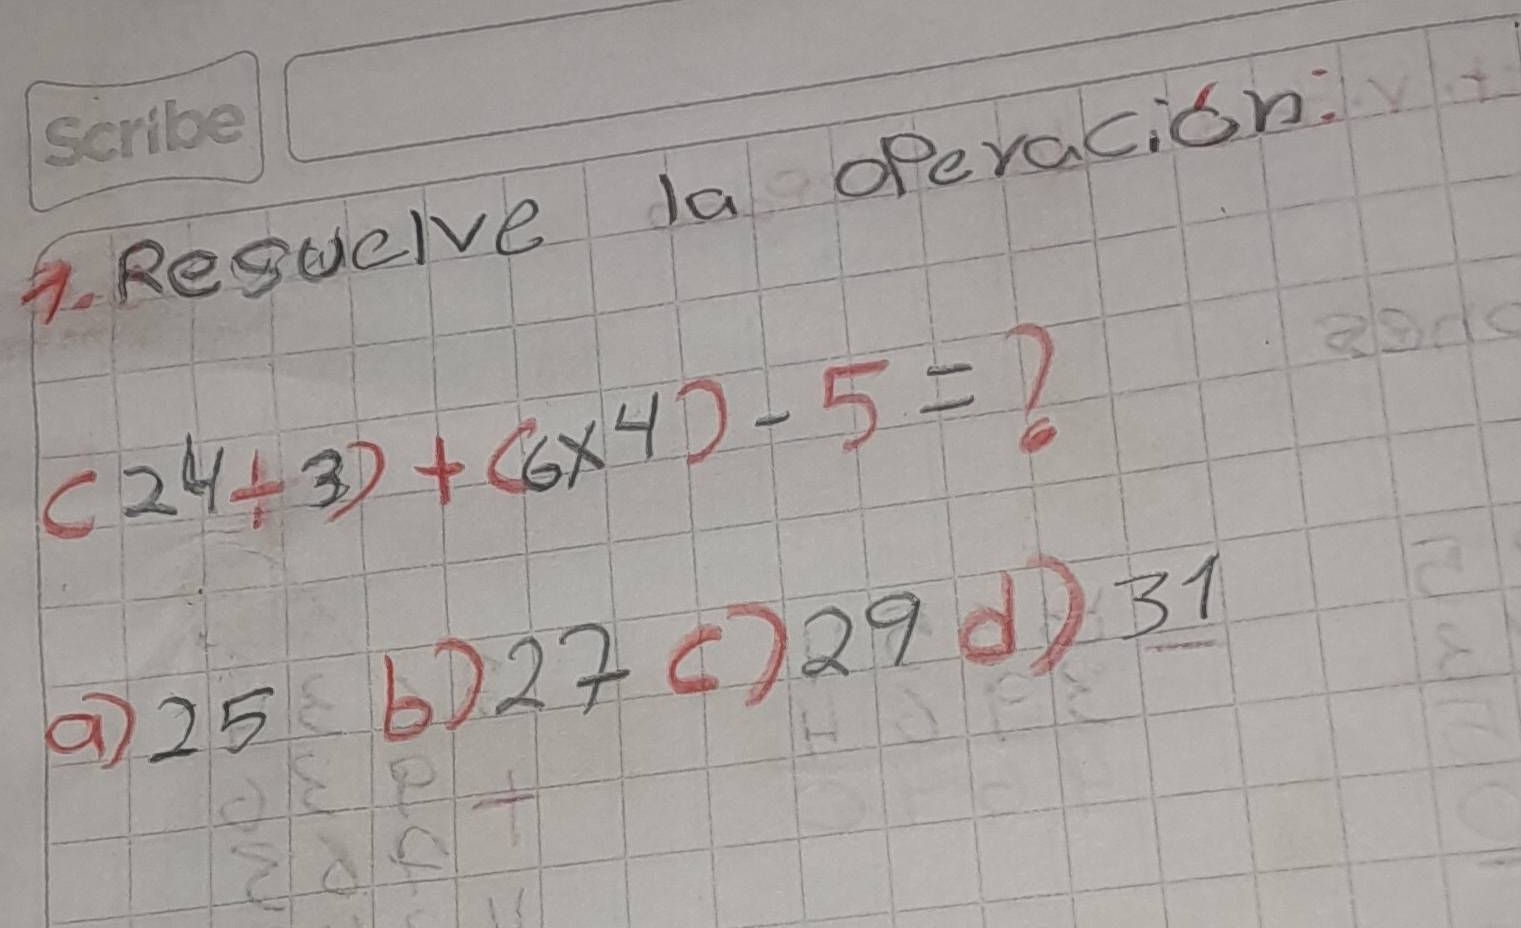 Scribe
1. Resuelve la operación:
(24÷3)+(6x4)-5=?
a) 25 b) 27 c) 29 d) 31